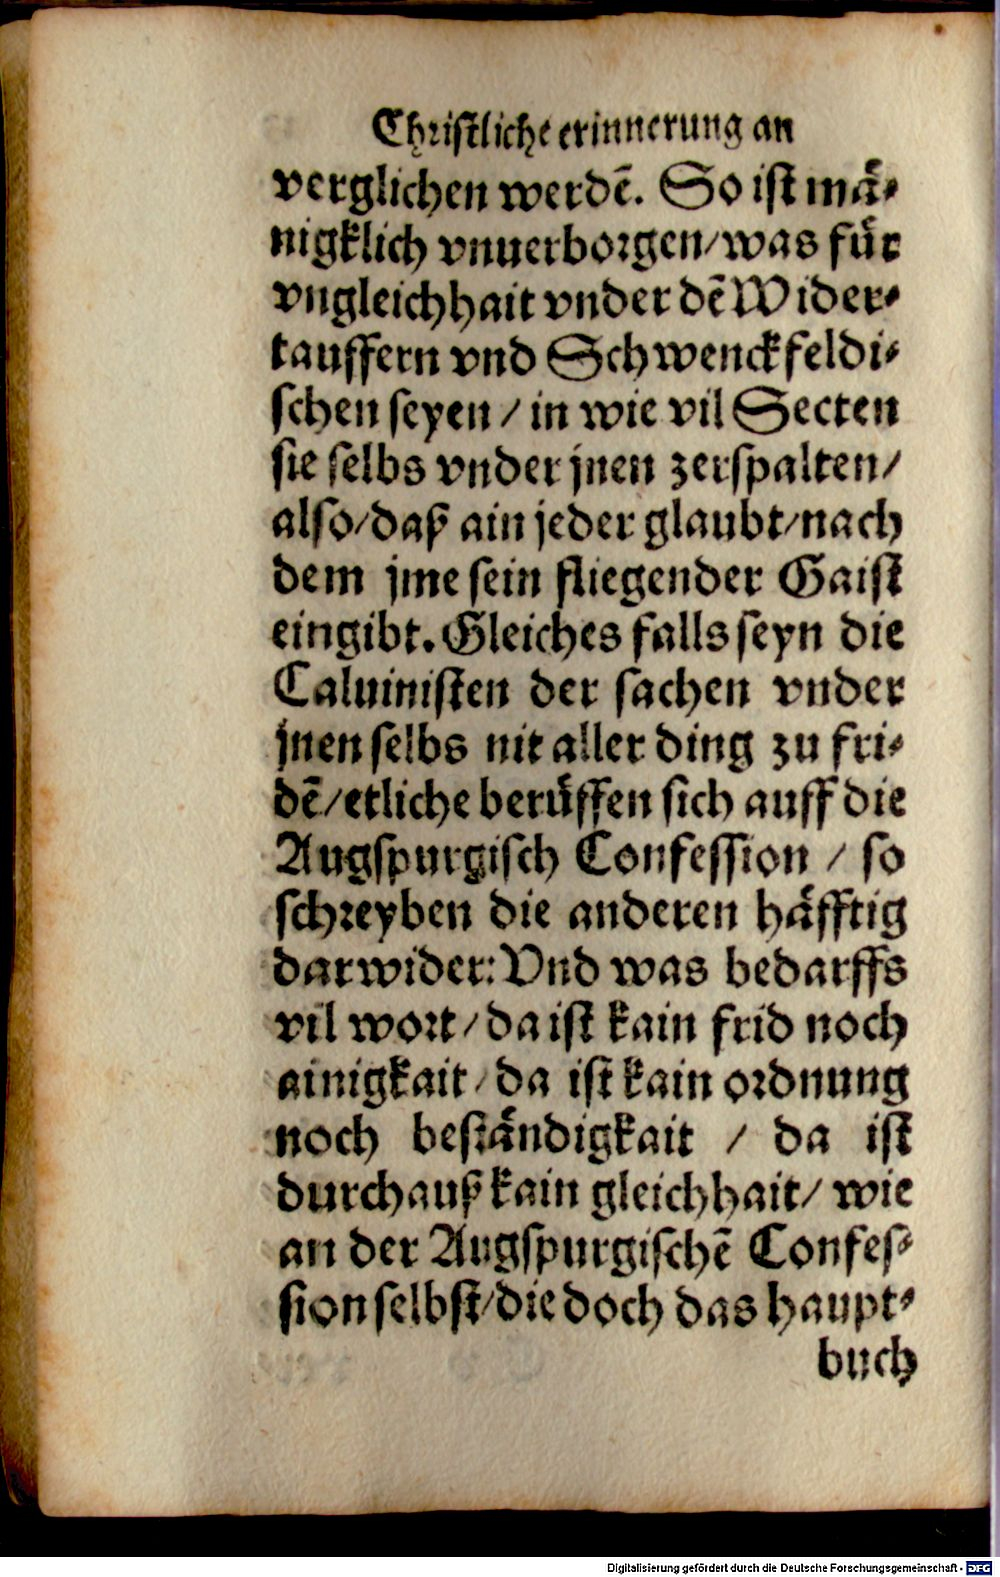 Christliche erinnerung an
verglichen werdẽ. So ist mä-
nigklich vnuerborgen/was für
vngleichhait vnder dẽ Wider-
tauffern vnd Schwenckfeldi-
schen seyen / in wie vil Secten
sie selbs vnder jnen zerspalten/
also/daß ain jeder glaubt/nach
dem jme sein fliegender Gaist
eingibt. Gleiches falls seyn die
Caluinisten der sachen vnder
jnen selbs nit aller ding zu fri-
dẽ/etliche berüffen sich auff die
Augspurgisch Confession / so
schreyben die anderen häfftig
darwider: Vnd was bedarffs
vil wort/da ist kain frid noch
ainigkait/da ist kain ordnung
noch beständigkait / da ist
durchauß kain gleichhait/ wie
an der Augspurgischẽ Confes-
sion selbst/die doch das haupt-
buch
Digitalisierung gefördert durch die Deutsche Forschungsgemeinschaft - DFG